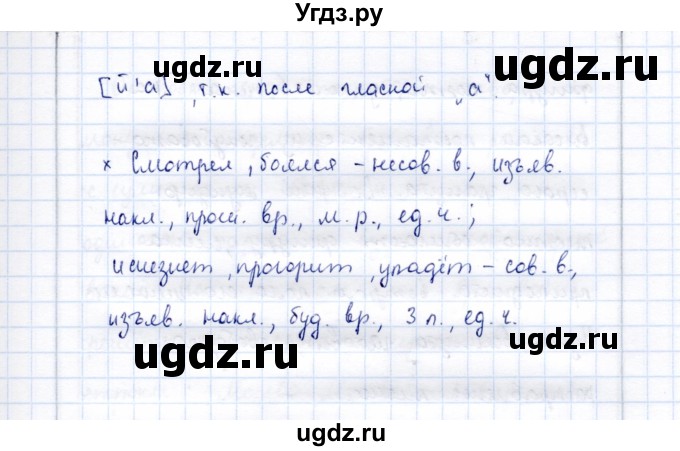 Угдз.ру
ugdz.ru ugdz.ru ugdz.ru
[й'а] , т.к. после гласной „а".
× Смотрел, боялся – несов. в., изъяв.
накл., прош. вр., м. р., ед. ч.;
исчезнет, прогорит, упадёт – сов. в.,
изъяв. накл., буд. вр., 3 л., ед. ч.
ugdz.ru ugdz.ru
ugdz.ru